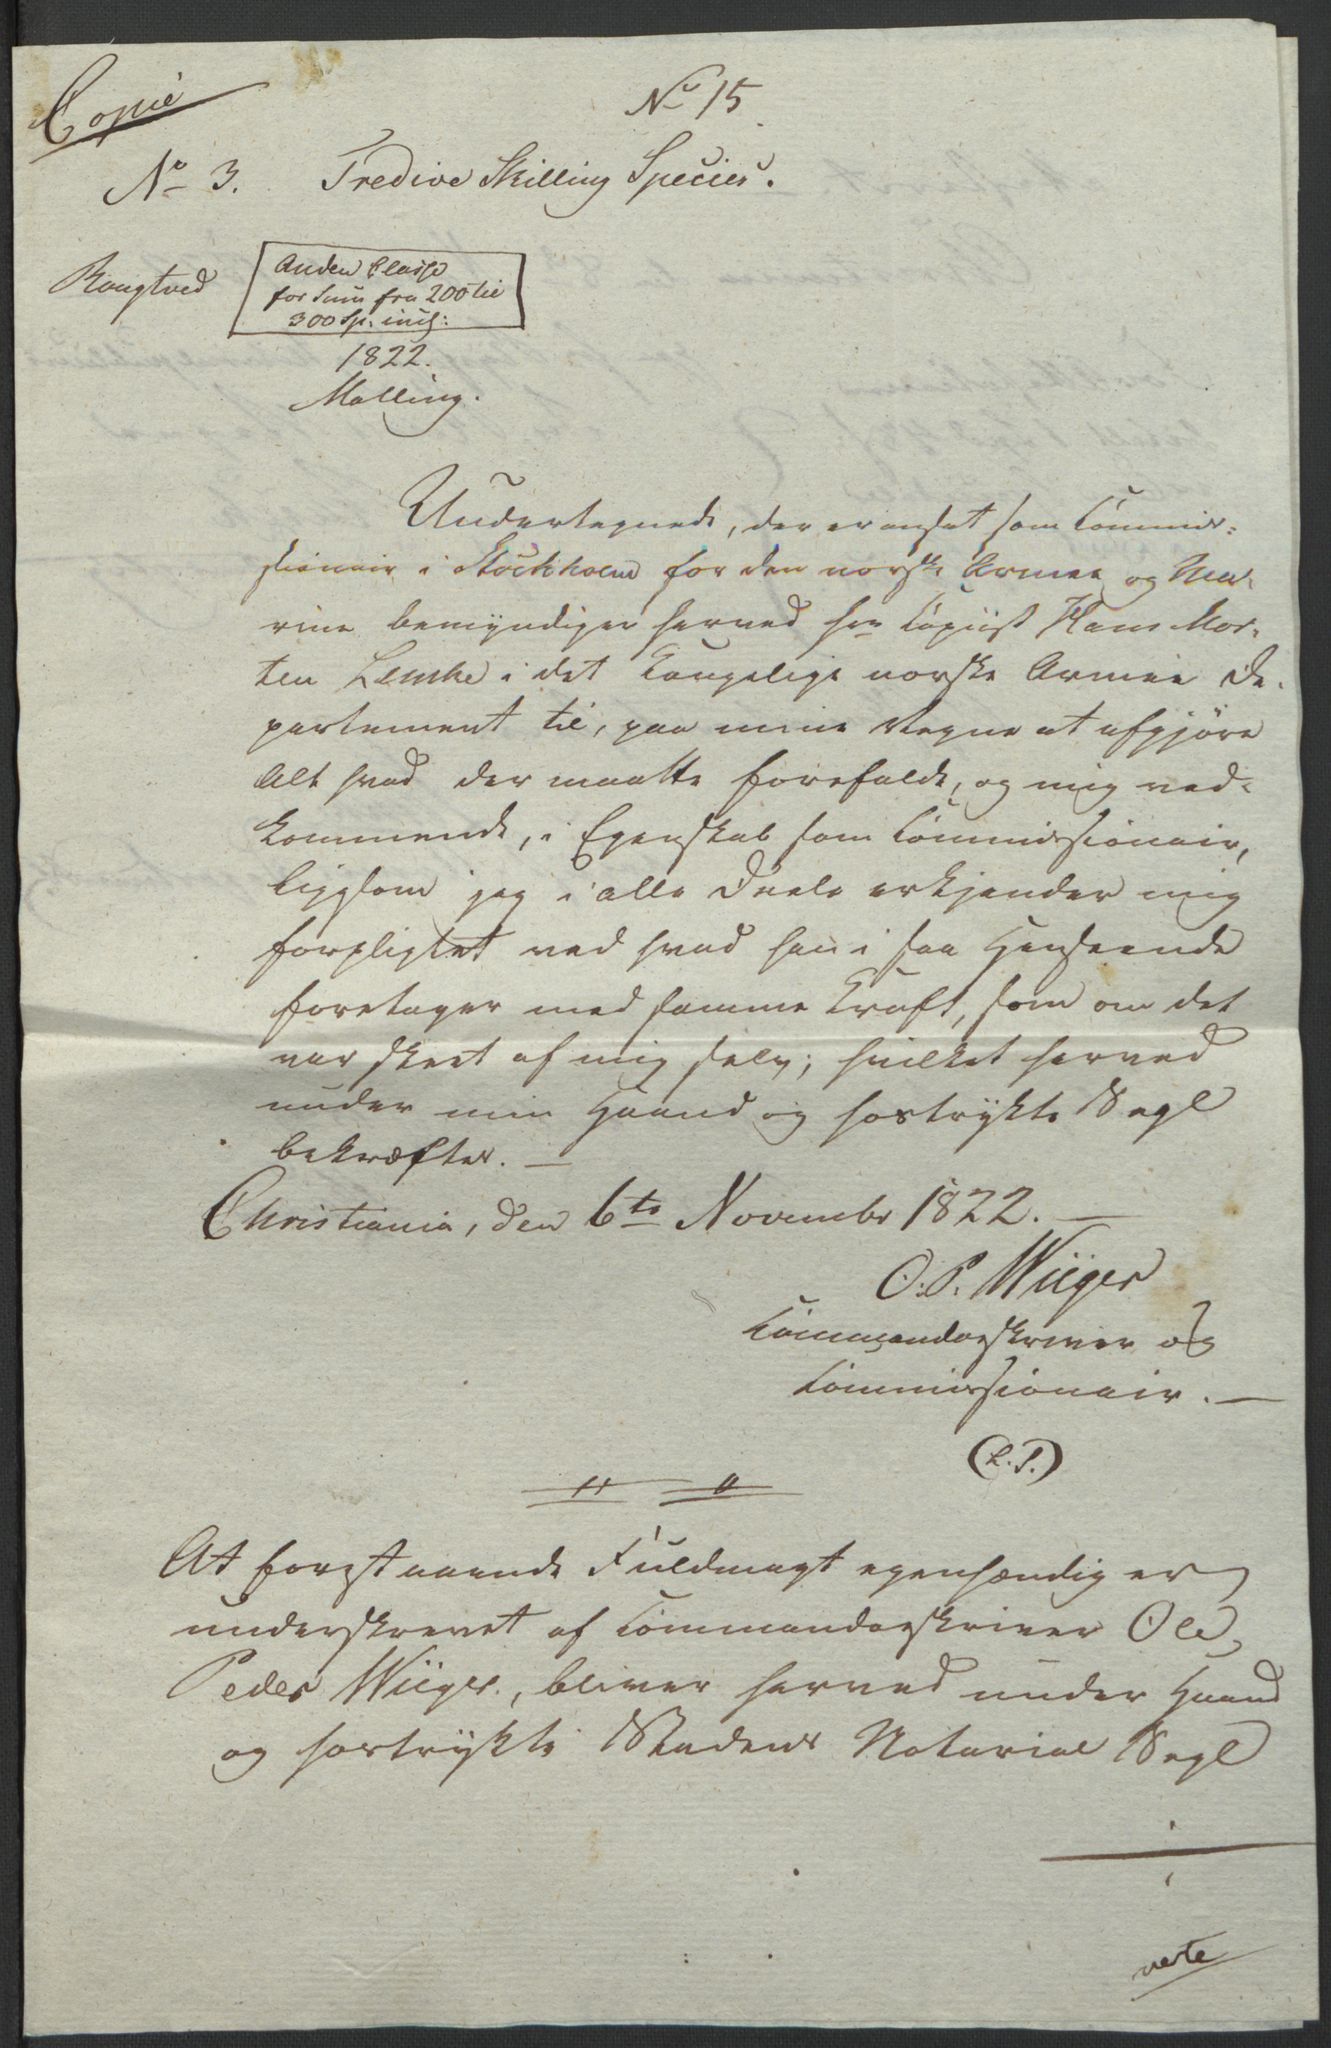 Copie
No 15
No 3. Tredive Skilling Species.
Rougtved
Anden Classe
for Sum fra 200 til
300 Sp. incl:
1822.
Malling.
Undertegnede, der er ansat som Commis-
sionair i Stockholm for den norske Armee og Ma-
rine bemyndiger herved Hr Copiist Hans Mor-
ten Lemke i det Kongelige norske Armee De-
partement til, paa mine Vegne at afgjöre
Alt hvad der maatte forefalde, og mig ved-
kommende, i Egenskab som Commissionair,
ligesom jeg i alle Deele erkjender mig
forpligtet ved hvad han i saa Henseende
foretager med samme Kraft, som om det
var skeet af mig selv; hvilket herved
under min Haand og hostrykte Segl
bekræftes. —
Christiania, den 6te Novembr 1822. —
O. P. Wiiger
Commandoskriver og
Commissionair. —
(L. S.)
At forestaaende Fuldmagt egenhændig er
underskrevet af Commandoskriver Ole
Peder Wiiger, bliver herved under Haand
og hostrykte Stadens Notarial Segl
verte